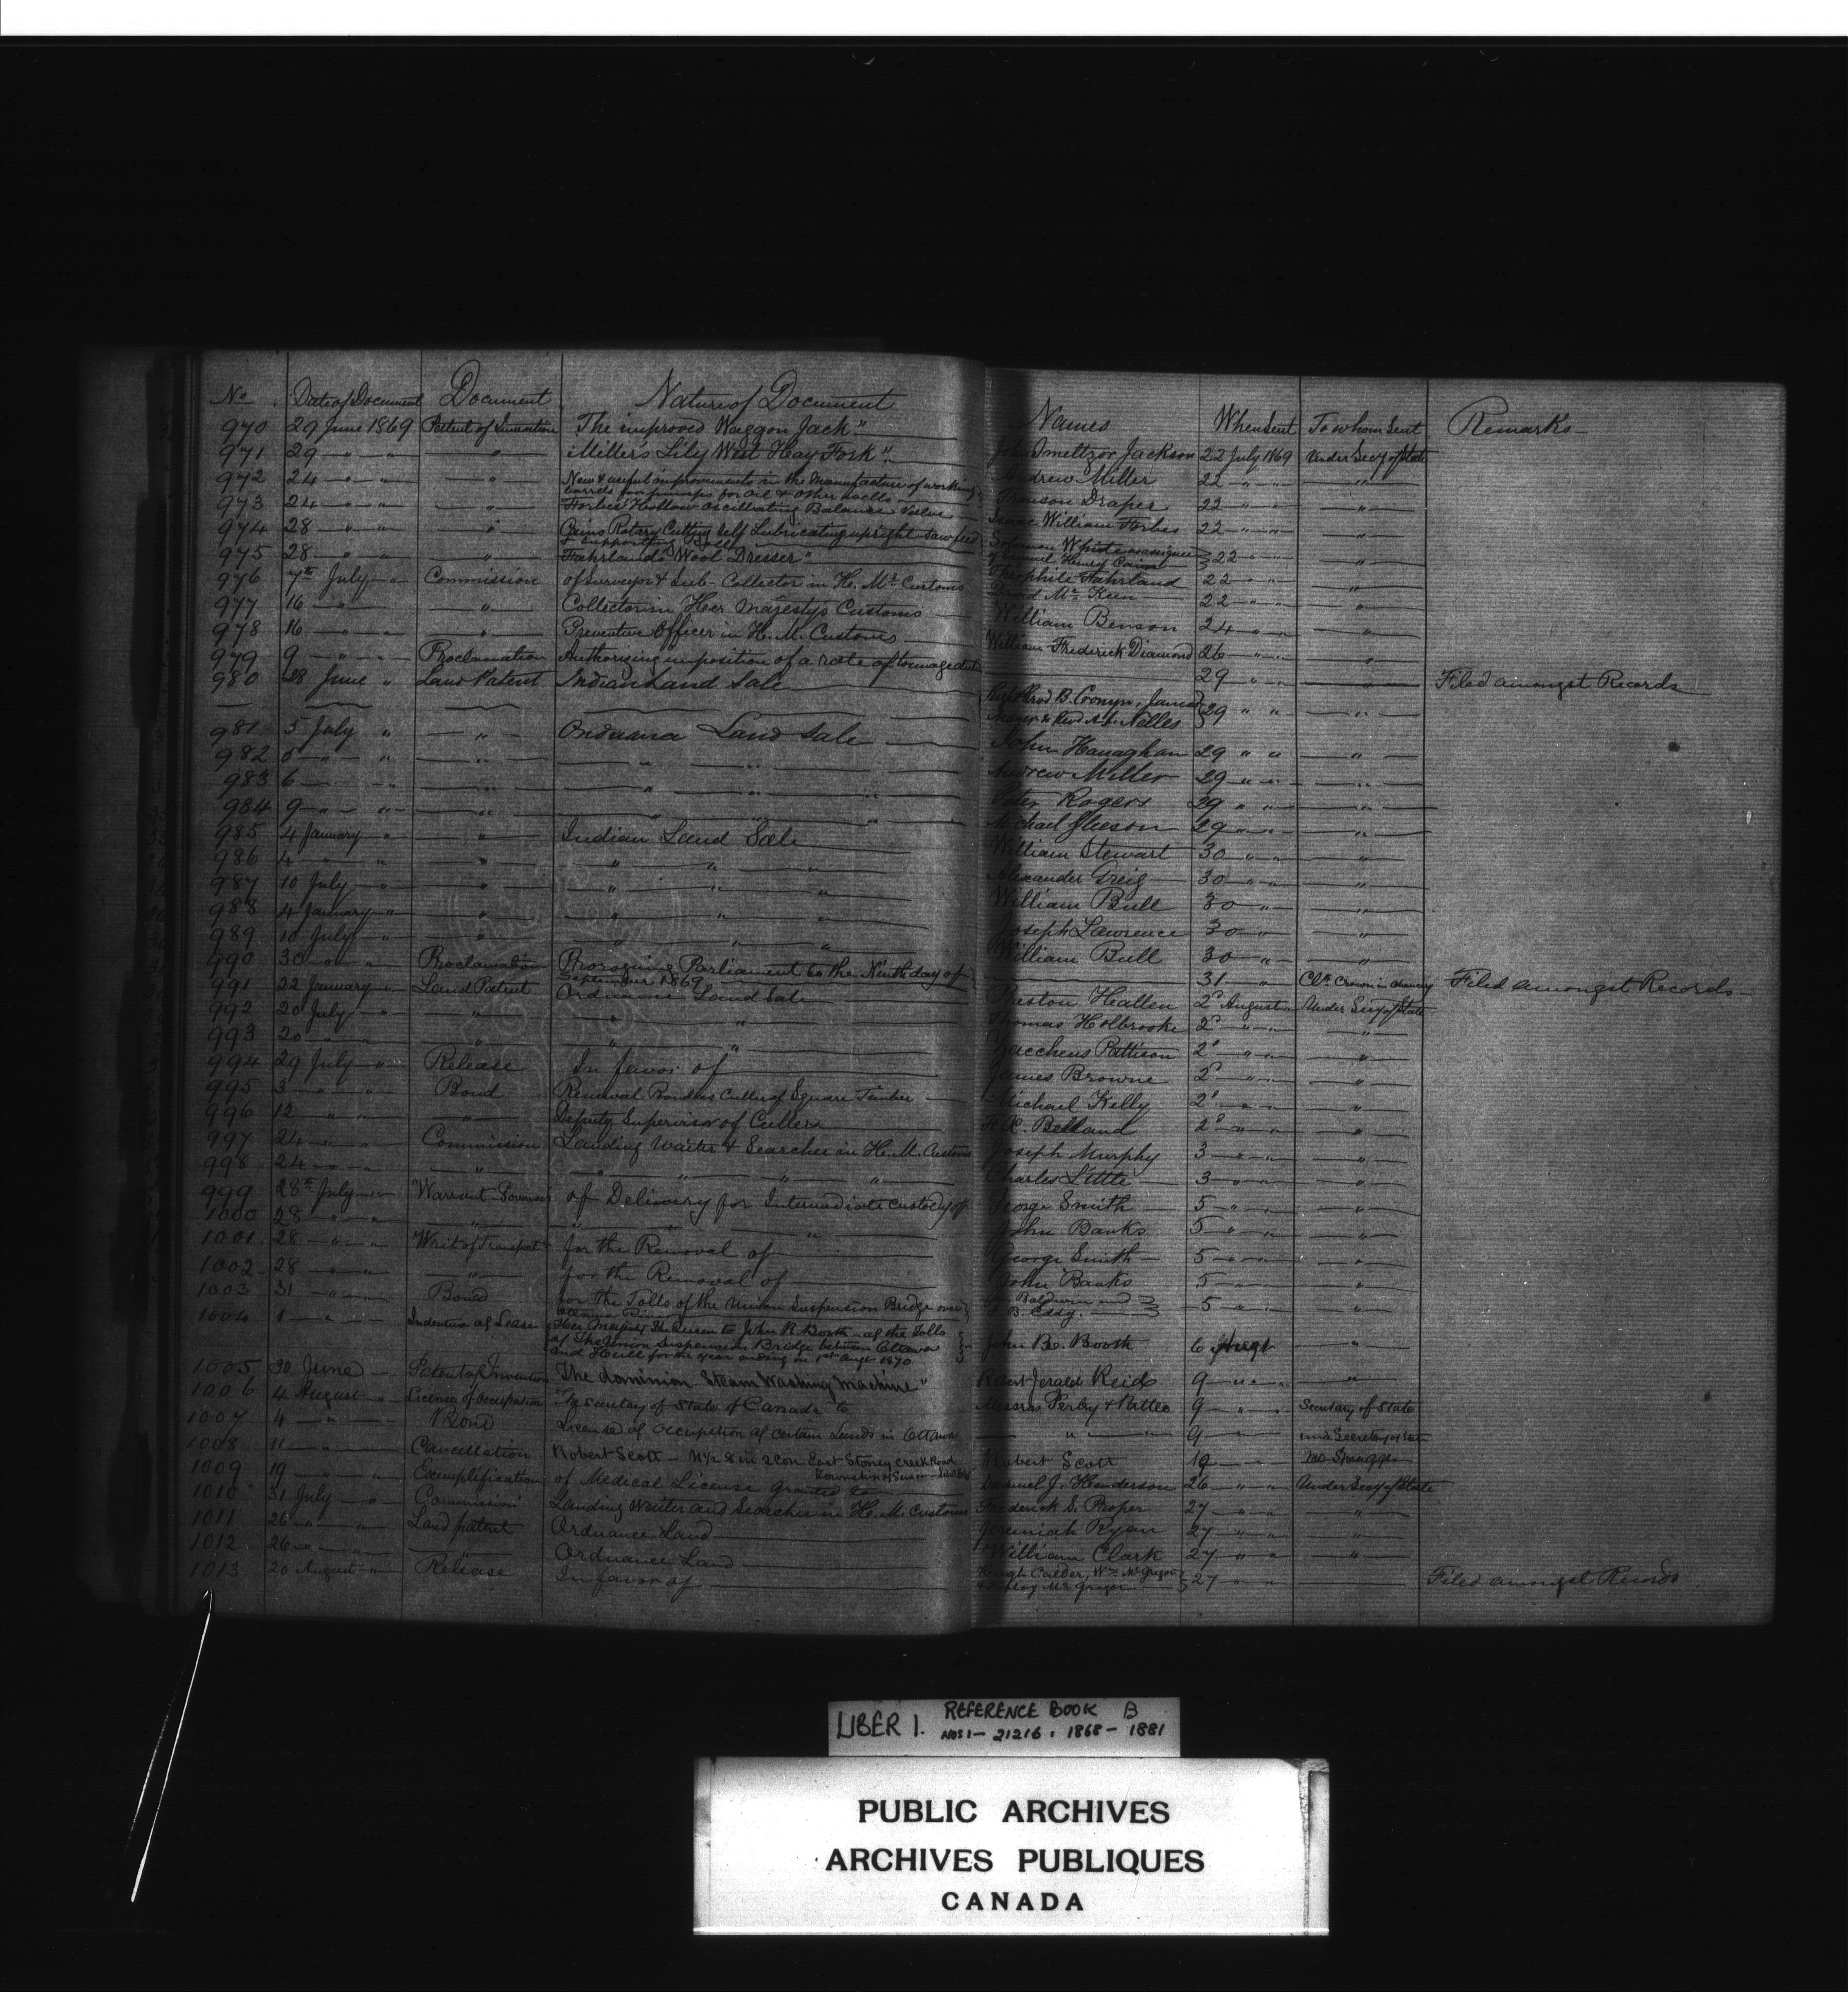 No Date of Document Document Nature of Document Names When Sent To whom Sent Remarks
970 29 June 1869 Patent of Invention "The improved Waggon Jack" John Smeltzor Jackson 22 July 1869 Under Secy of State
971 29 " " " Miller's Lily West Hay Fork" Andrew Miller 22 " " "
972 24 " " " New & useful improvements in the manufacture of working barrels for pumps for oil & other wells Draper 22 " " "
973 24 " " " Forbes' Hollow Oscillating Balance Valve Isaac William Forbes 22 " " "
974 28 " " " Rotary Cutting Self Lubricating upright saw feed & supporting Solomon White as assignee of Henry 22 " " "
975 28 " " " Fahrland's Wool Dresser" Theophile Fahrland 22 " " "
976 7th July " Commission of Surveyor & Sub-Collector in H. Ms Customs David Mc Keen 22 " " "
977 16 " " " Collector in Her Majesty's Customs William Benson 24 " " "
978 16 " " " Preventive Officer in H. M. Customs William Frederick Diamond 26 " " "
979 9 " " Proclamation Authorizing imposition of a rate of tonnage duties 29 " " " Filed amongst Records
980 28 June " Land Patent Indian Land Sale B. Cronyn, James & Revd A. Nelles 29 " " "
981 5 July " " Ordnance Land Sale John Hanaghan 29 " " "
982 6 " " " " " " Andrew Miller 29 " " "
983 6 " " " " " " Peter Rogers 29 " " "
984 9 " " " " " " Michael Gleeson 29 " " "
985 4 January " " Indian Land Sale William Stewart 30 " " "
986 4 " " " " " " Alexander Greig 30 " " "
987 10 July " " " " " William Bull 30 " "
988 4 January " " " " " Joseph Lawrence 30 " "
989 10 July " " " " " William Bull 30 " " "
990 30 " " Proclamation Proroguing Parliament to the Ninth day of September 1869 31 " Clk Crown in Chancery Filed amongst Records
991 22 January " Land Patent Ordnance Land Sale Preston Hallen 2d August " Under Secy of State
992 20 July " " " " Thomas Holbrooke 2d " " "
993 20 " " " " " Zaccheus Pattison 2d " " "
994 29 July " Release In favor of James Browne 2d " " "
995 3 " " Bond Renewal Bond as Culler of Square Timber Michael Kelly 2d " " "
996 12 " " " Deputy Supervisor of Cullers F. X. Belland 2d " " "
997 24 " " Commission Landing Waiter & Searcher in H. M. Customs Joseph Murphy 3 " " "
998 24 " " " " " " Charles Little 3 " " "
999 28th July " Warrant of Delivery for Intermediate custody of George Smith 5 " " "
1000 28 " " " " " " John Banks 5 " " "
1001 28 " " Writ of Transport for the Removal of George Smith 5 " " "
1002 28 " " " for the Removal of John Banks 5 " " "
1003 31 " " Bond for the Tolls of the Union Suspension Bridge over Baldwin and E. B. Eddy. 5 " " "
1004 1 " " Indenture of Lease Her Majesty The Queen to John R. Booth - of the Tolls
of The Union Suspension Bridge between Ottawa
and Hull for the year ending on 1st Augt 1870 John R. Booth 6 Augt "
1005 30 June Patent of Invention "The dominion Steam Washing Machine" Robert Jerald Reid 9 " " "
1006 4 August " License of Occupation The Secretary of State of Canada to Messrs Perley & Pattee 9 " " Secretary of State
1007 4 " " Bond License of Occupation of certain Lands in Ottawa " " 9 " " Under Secretary of State
1008 11 " Cancellation Robert Scott - N 1/2 8 in 2 con. East Stoney Creek Road Robert Scott 19 " " Mr Spragge
1009 19 " " Exemplification of Medical License granted to J. Henderson 26 " " Under Secy of State
1010 31 July " Commission Landing Waiter and Searcher in H. M. Customs Frederick S. Proper 27 " " "
1011 26 " " Land patent Ordnance Land Jeremiah Ryan 27 " " "
1012 26 " " " Ordnance Land William Clark 27 " " "
1013 20 August " Release In favor of Hugh Calder, Wm McGregor & Mc Gregor 27 " " Filed amongst Records
LIBER 1. REFERENCE BOOK B
NOS 1 - 21216 : 1868 - 1881
PUBLIC ARCHIVES
ARCHIVES PUBLIQUES
CANADA